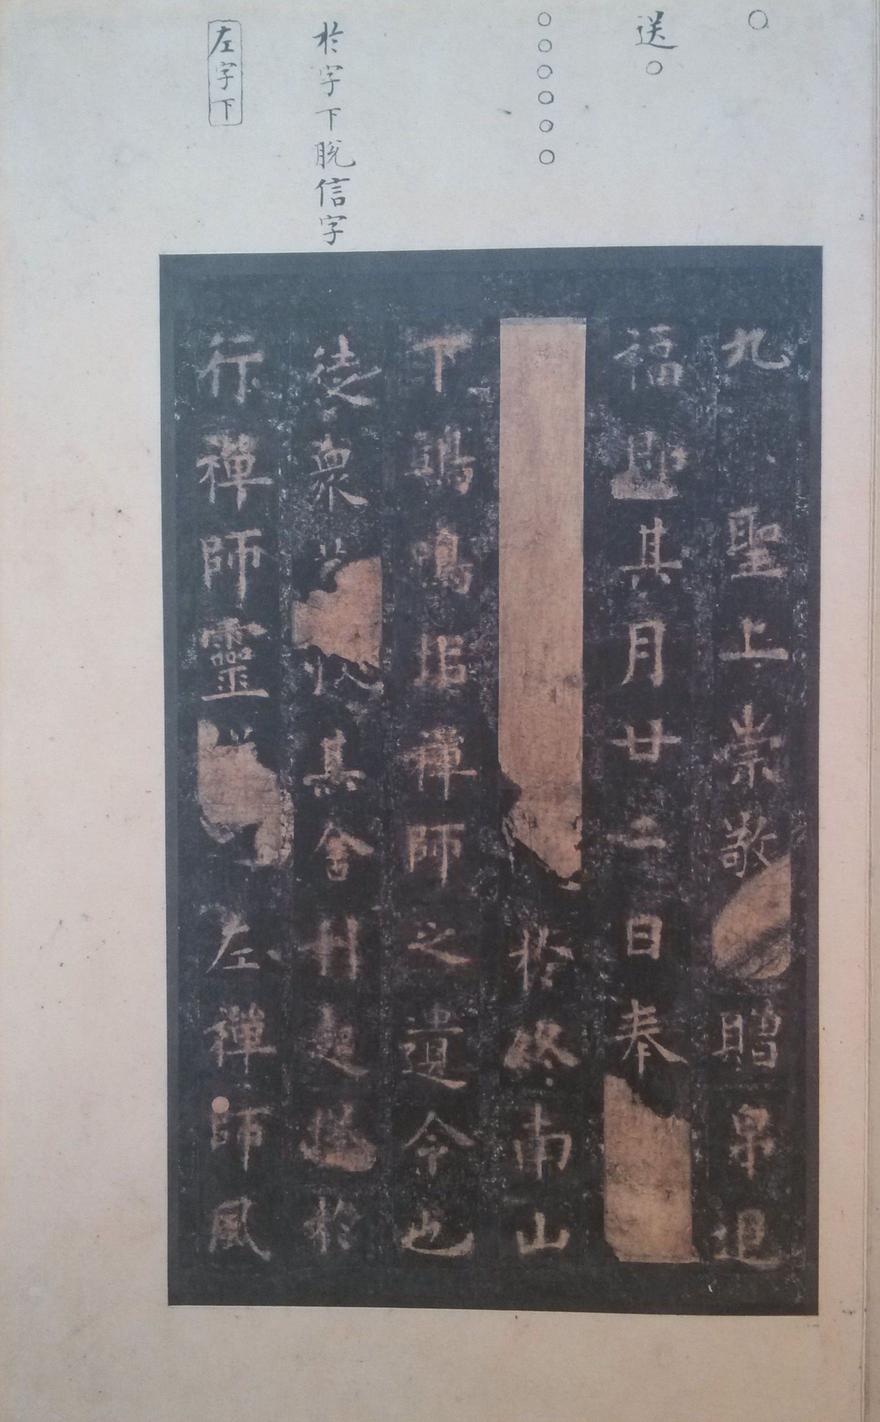 ○
送○
○○○○○○
於字下脫信字
左字下
九聖上崇敬贈帛追
福即其月廿二日奉
於終南山
下鵄鳴垖禪師之遺令也
徒衆收其舍利起塔於
行禪師靈左禪師風